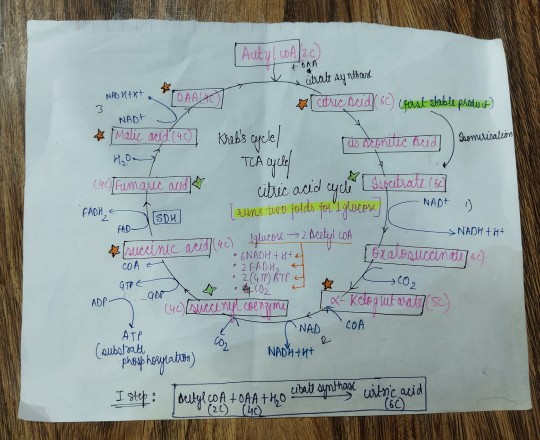 Acetyl coA (2C)
+ OAA
citrate synthase
NADH+H+
3
OAA (4C)
Citric Acid (6C) (first stable product)
NAD+
Malic acid (4C)
Kreb's cycle/
cis Aconitic Acid
Isomerisation
H₂O
TCA cycle/
(4C) Fumaric acid
citric acid cycle
Isocitrate (6C)
runs two folds for 1 glucose
NAD+
1)
FADH₂
SDH
FAD
NADH+H+
1 glucose → 2 Acetyl coA
succinic acid (4C)
• 6NADH+H+
Oxalosuccinate (6C)
COA
• 2FADH₂
GTP
GDP
• 2(GTP) ATP
CO₂
• 4CO₂
ADP
(4C) succinyl coenzyme
α-Ketoglutarate (5C)
COA
NAD
2
CO₂
NADH+H+
ATP
(substrate
phosphorylation)
I step :
Acetyl COA + OAA + H₂O citrate synthase → citric acid
(2C) (4C) (6C)